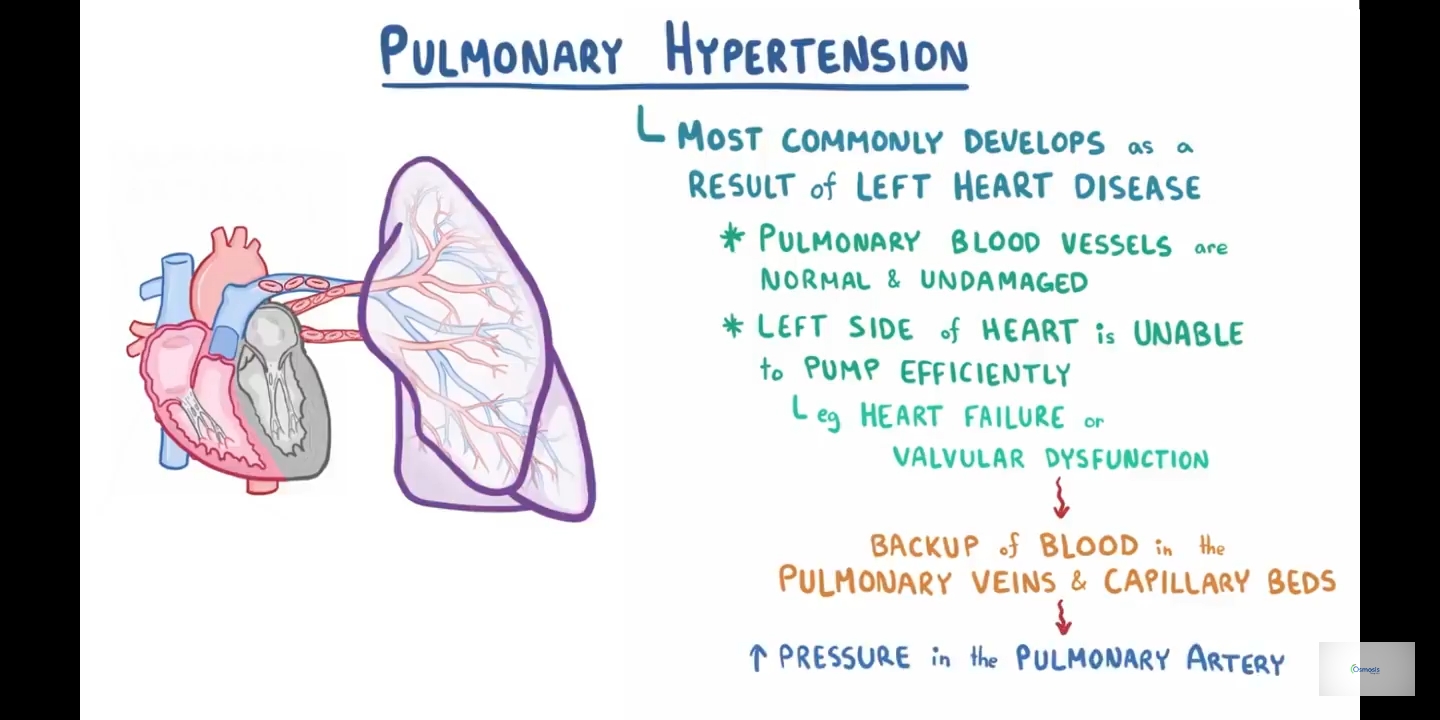 PULMONARY HYPERTENSION
MOST COMMONLY DEVELOPS as a
RESULT of LEFT HEART DISEASE
* PULMONARY BLOOD VESSELS are
NORMAL & UNDAMAGED
* LEFT SIDE of HEART is UNABLE
to PUMP EFFICIENTLY
eg HEART FAILURE or
VALVULAR DYSFUNCTION
BACKUP of BLOOD in the
PULMONARY VEINS & CAPILLARY BEDS
↑ PRESSURE in the PULMONARY ARTERY
Osmosis